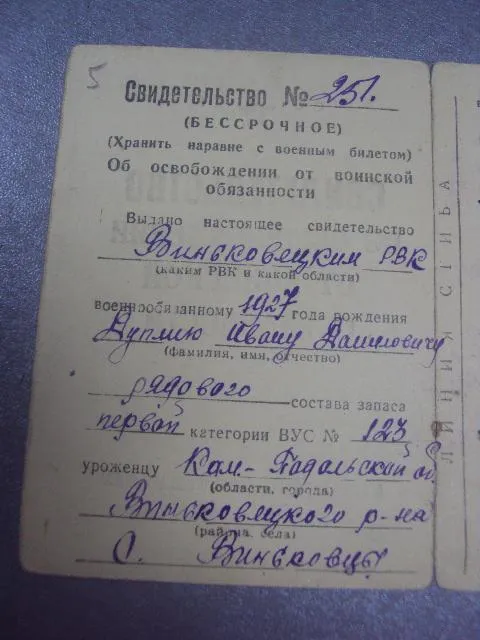 5
Свидетельство № 251.
(БЕССРОЧНОЕ)
(Хранить наравне с военным билетом)
Об освобождении от воинской
обязанности
Выдано настоящее свидетельство
Виньковецким РВК
(каким РВК и какой области)
военнообязанному 1927 года рождения
Дуплию Ивану Даниловичу
(фамилия, имя, отчество)
рядового состава запаса
первой категории ВУС № 123
уроженцу Кам-Подольской об.
(области, города)
Виньковецкого р-на
(района, села)
с. Виньковцы
ЛИНИЯ СГИБА